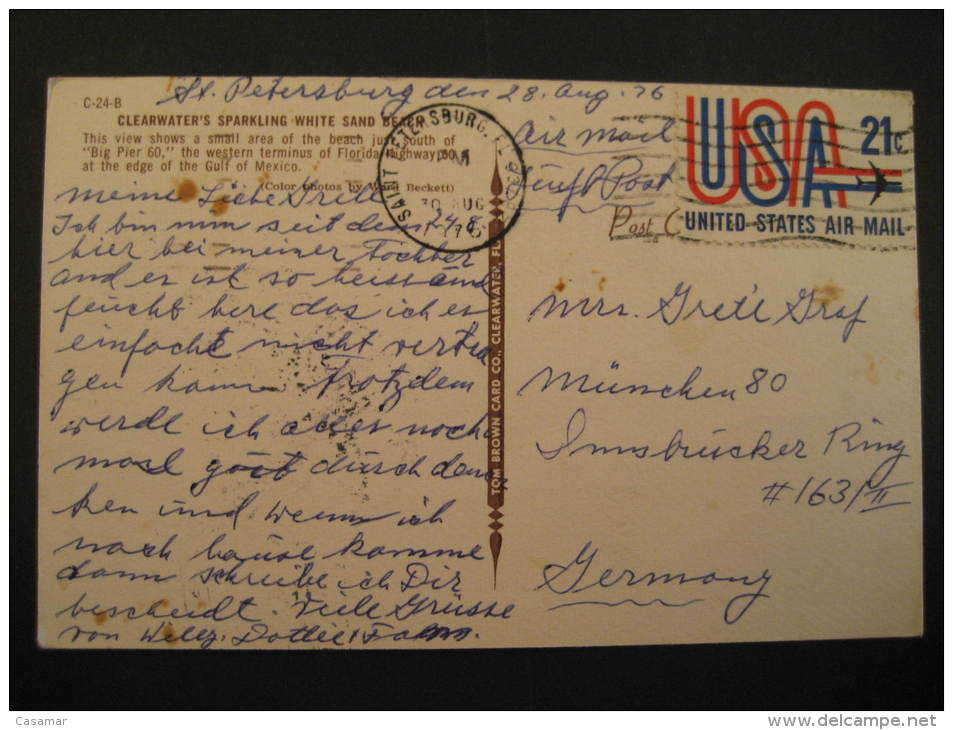 St. Petersburg den 28. Aug. 76
C-24-B
CLEARWATER'S SPARKLING WHITE SAND BEACH
This view shows a small area of the beach just south of
"Big Pier 60," the western terminus of Florida Highway 60,
at the edge of the Gulf of Mexico.
(Color photos by Beckett)
meine Liebe Gretl
Ich bin nun seit dem 24.8.
hier bei meiner Tochter
und es ist so heiss und
feucht here das ich es
einfach nicht vertra
gen kann Trotzdem
werde ich alles noch
mal gut durch den
ken und wenn ich
nach hause komme
dann schreibe ich Dir
bescheidt. Viele Grüsse
von Willy. Dottie +
SAINT PETERSBURG, FL
PM
30 AUG
1976
TOM BROWN CARD CO., CLEARWATER, FL
Air mail
Luft Post
Post C
USA 21c
UNITED STATES AIR MAIL
Mrs. Gretl Graf
München 80
Innsbrucker Ring
#163/III
Germany
Casamar
www.delcampe.net